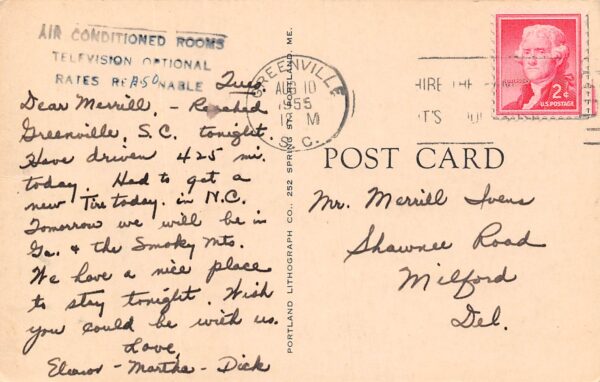 AIR CONDITIONED ROOMS
TELEVISION OPTIONAL
RATES REASONABLE
Tues.
Dear Merrill, - Reached
Greenville, S.C. tonight.
Have driven 425 mi.
today. Had to get a
new Tire today. in N.C.
Tomorrow we will be in
Ga. & the Smoky Mts.
We have a nice place
to stay tonight. Wish
you could be with us.
Love,
Eleanor - Martha - Dick
PORTLAND LITHOGRAPH CO., 252 SPRING ST., PORTLAND, ME.
GREENVILLE
AUG 10
1955
M
S. C.
HIRE THE
IT'S
2¢
U.S. POSTAGE
POST CARD
Mr. Merrill Ivens
Shawnee Road
Milford
Del.